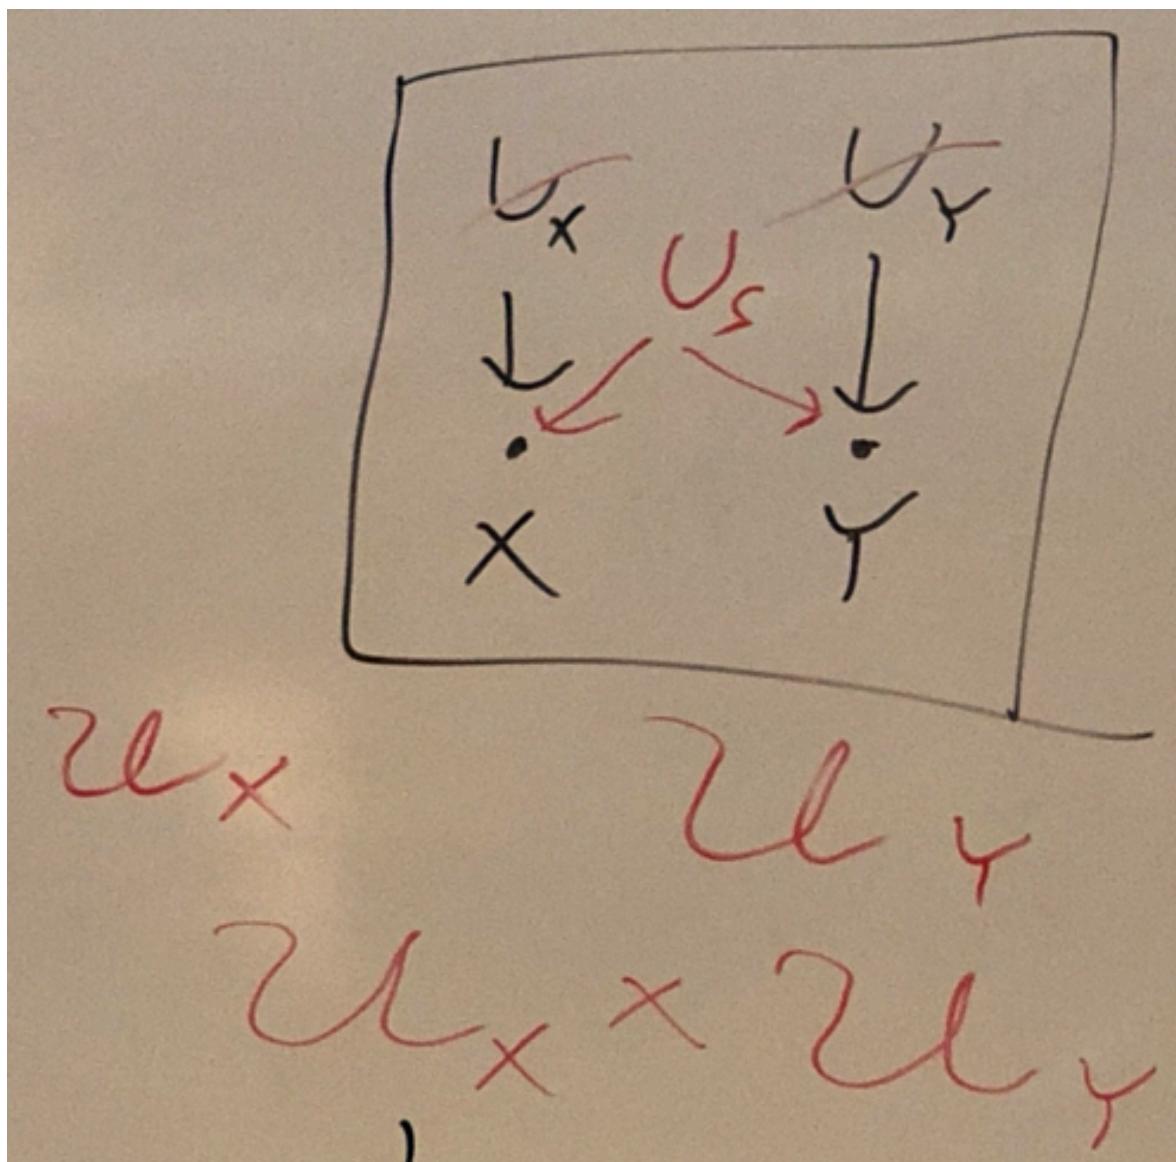 U_X U_Y
U_S
X Y
𝒰_X 𝒰_Y
𝒰_X × 𝒰_Y